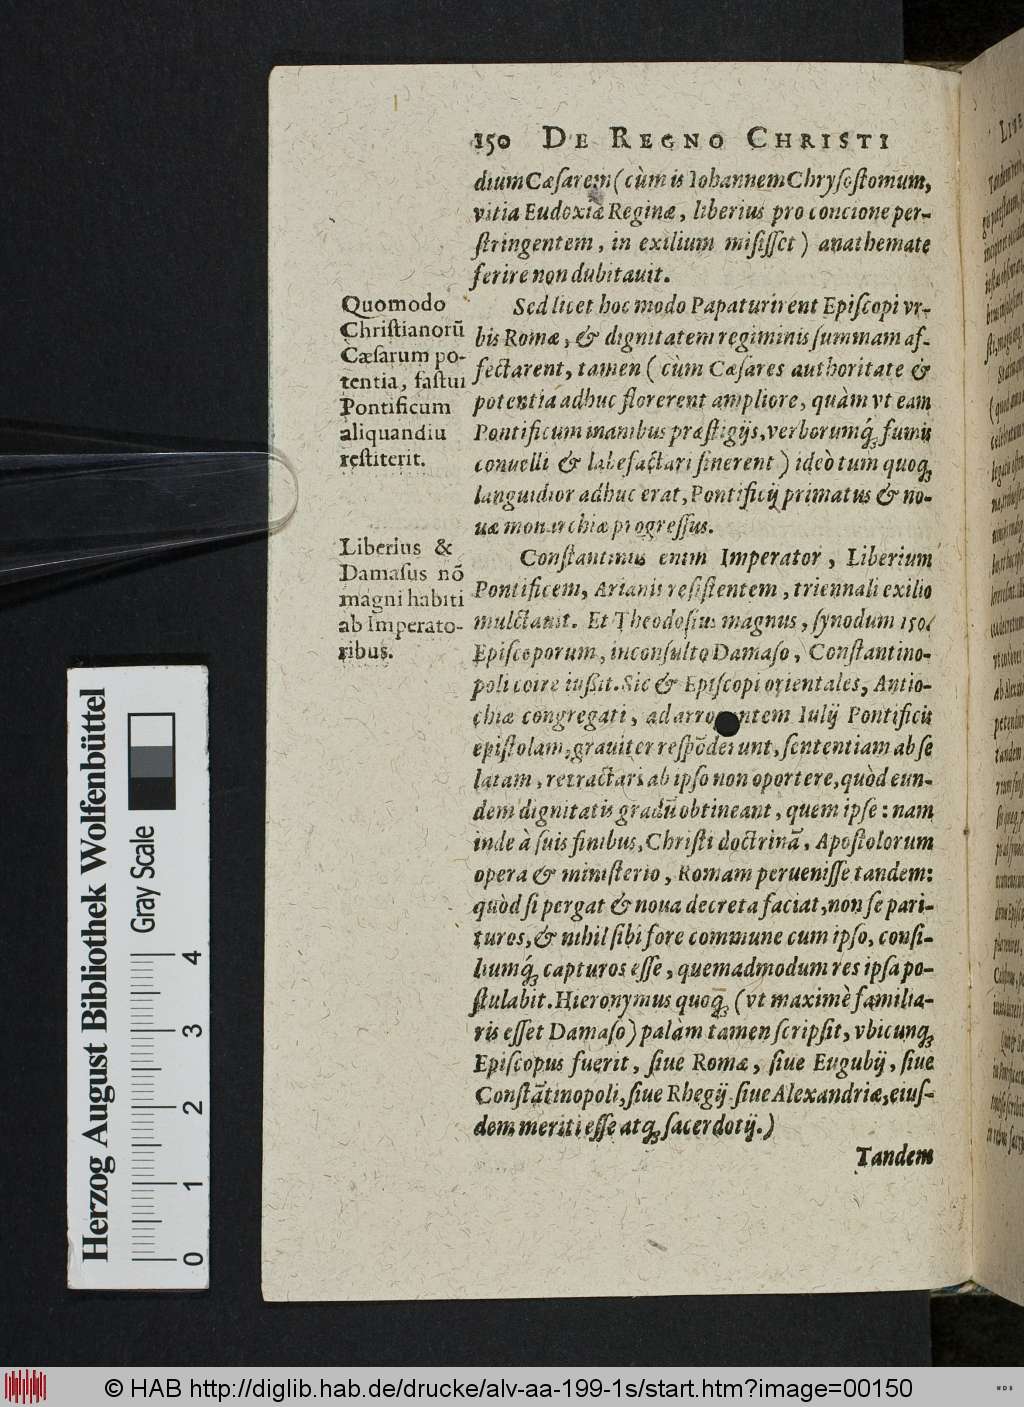 150 DE REGNO CHRISTI
dium Cæsarem (cùm is Iohannem Chrysostomum,
vitia Eudoxiæ Reginæ, liberius pro concione per-
ſtringentem, in exilium miſiſſet) anathemate
ferire non dubitauit.
Sed licet hoc modo Papaturirent Epiſcopi vr-
bis Romæ, & dignitatem regiminis ſummam af-
fectarent, tamen (cùm Cæſares authoritate &
potentia adhuc florerent ampliore, quàm vt eam
Pontificum inanibus præſtigijs, verborumq́ꝫ fumis
conuelli & labefactari ſinerent) ideò tum quoqꝫ
languidior adhuc erat, Pontificij primatus & no-
uæ monarchiæ progreſſus.
Conſtantinus enim Imperator, Liberium
Pontificem, Arianis reſiſtentem, triennali exilio
mulctauit. Et Theodoſius magnus, ſynodum 150.
Epiſcoporum, inconſulto Damaſo, Conſtantino-
poli coire iußit. Sic & Epiſcopi orientales, Antio-
chiæ congregati, ad Iulij Pontificis
epiſtolam, grauiter reſpōderunt, ſententiam ab ſe
latam, retractari ab ipſo non oportere, quòd eun-
dem dignitatis gradū obtineant, quem ipſe: nam
inde à ſuis finibus, Chriſti doctrinā, Apoſtolorum
opera & miniſterio, Romam perueniſſe tandem:
quòd ſi pergat & noua decreta faciat, non ſe pari-
turos, & nihil ſibi fore commune cum ipſo, conſi-
liumq́ꝫ capturos eſſe, quemadmodum res ipſa po-
ſtulabit. Hieronymus quoqꝫ (vt maximè familia-
ris eſſet Damaſo) palàm tamen ſcripſit, vbicunqꝫ
Epiſcopus fuerit, ſiue Romæ, ſiue Eugubij, ſiue
Conſtātinopoli, ſiue Rhegij ſiue Alexandriæ, eiuſ-
dem meriti eſſe atqꝫ ſacerdotij.)
Tandem
Quomodo
Chriſtianorū
Cæſarum po-
tentia, faſtui
Pontificum
aliquandiu
reſtiterit.
Liberius &
Damaſus nō
magni habiti
ab Imperato-
ribus.
Herzog August Bibliothek Wolfenbüttel
Gray Scale
0 1 2 3 4
© HAB http://diglib.hab.de/drucke/alv-aa-199-1s/start.htm?image=00150